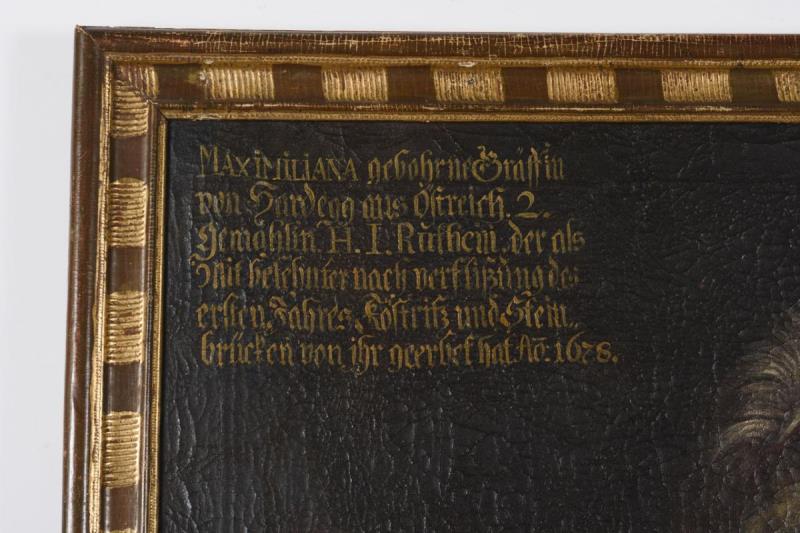 MAXIMILIANA gebohrne Gräffin
von Hardegg aus Östreich. 2.
Gemählin H. I. Rutheni, der als
Mit belehnter nach verfließung des
ersten Jahres, Köstritz und Stein„
brücken von ihr geerbet hat. Aõ: 1678.